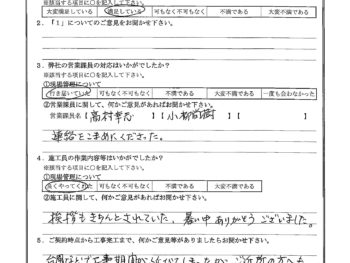 ※該当する項目に○を記入して下さい。
大変満足している 満足している 可もなく不可もなく 不満である 大変不満である
2．「1」についてのご意見をお聞かせ下さい。
3．弊社の営業課員の対応はいかがでしたか？
※該当する項目に○を記入して下さい。
①現場管理について
行き届いていた 可もなく不可もなく 不満である 大変不満である 一度も会わなかった
②営業課員に関して、何かご意見があればお聞かせ下さい。
営業課員名【高村 】【小柳 樹】【 】
連絡をこまめにくださった。
4．施工員の作業内容等はいかがでしたか？
※該当する項目に○を記入して下さい。
①現場管理について
良くやってくれた 可もなく不可もなく 不満である 大変不満である
②施工員に関して、何かご意見があればお聞かせ下さい。
挨拶もきちんとされていた、暑い中ありがとうございました。
5．ご契約時点から工事完工まで、何かご意見等がありましたらお聞かせ下さい。